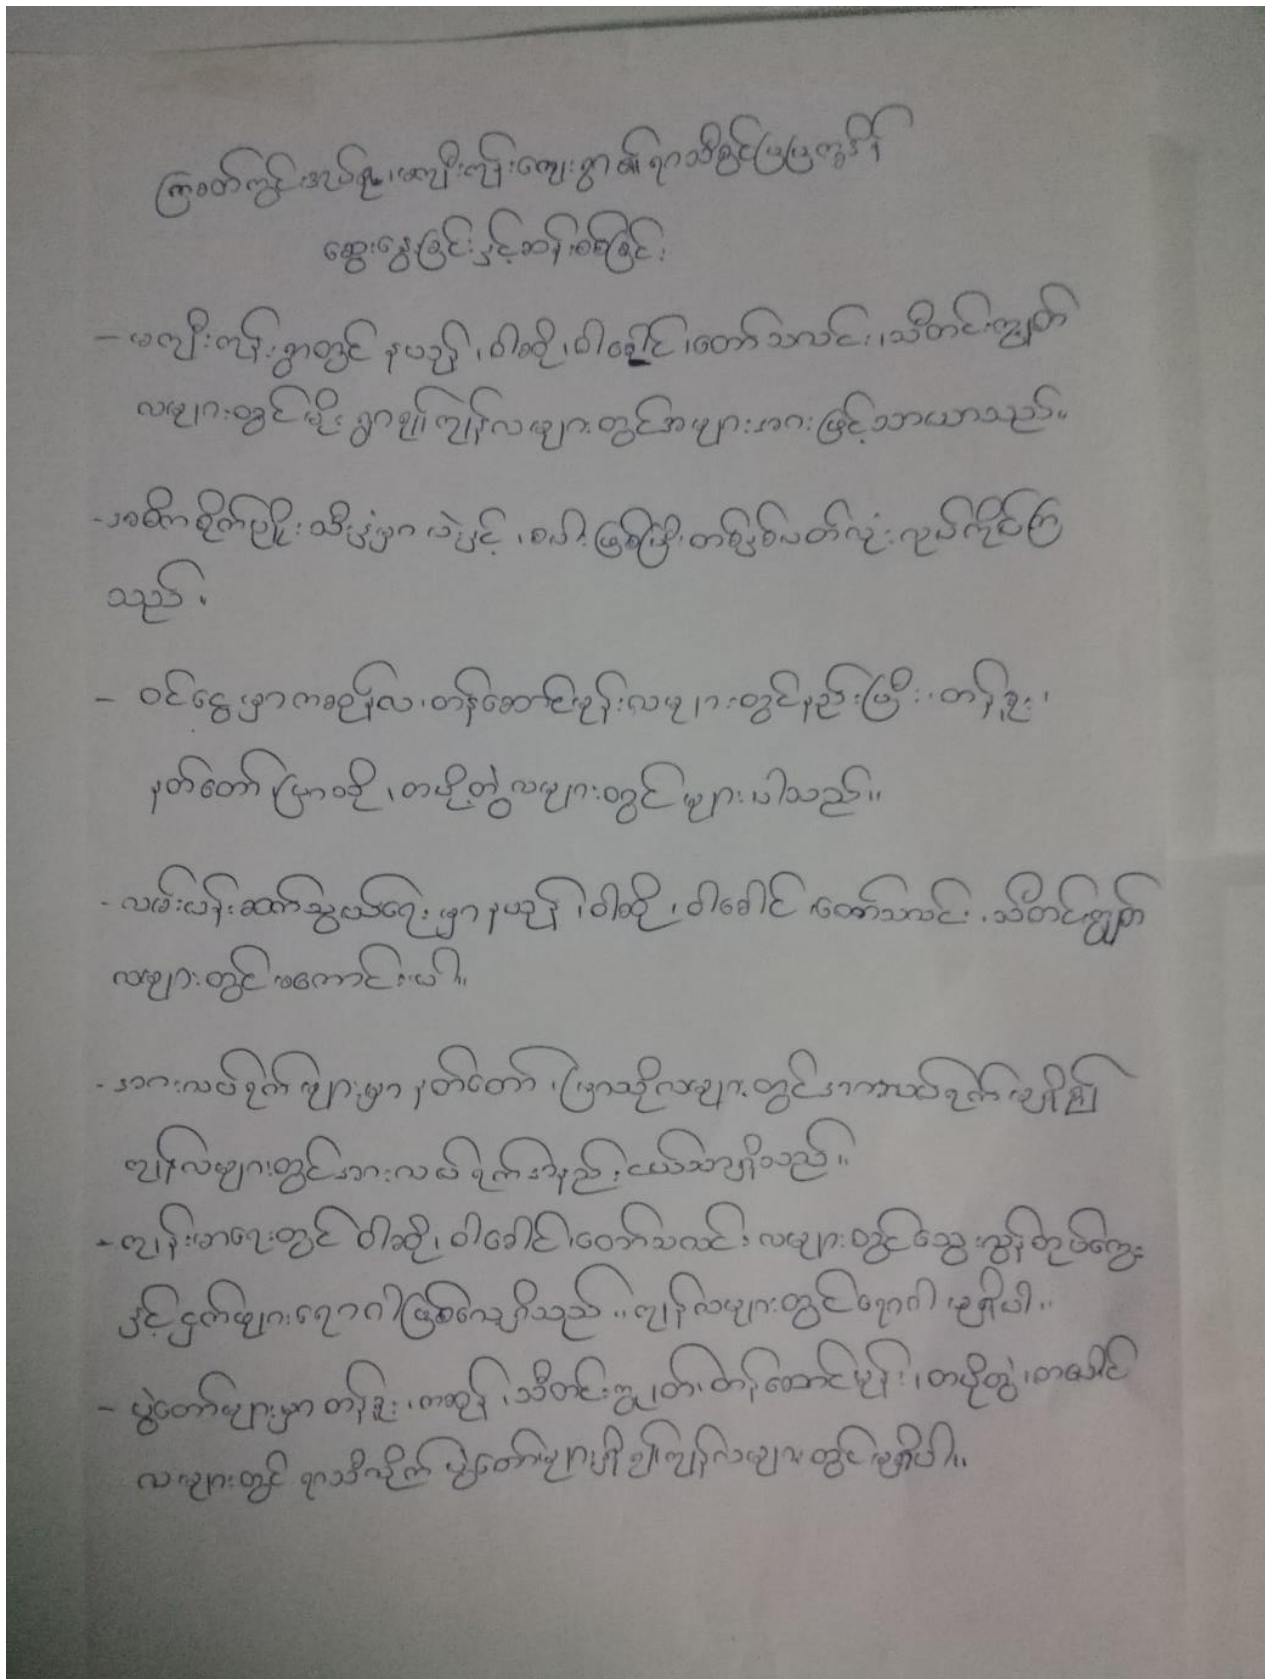 ကြခတ်ကွင်းအုပ်စု၊မကျီးကုန်းကျေးရွာ၏ရာသီခွင်ပြပြက္ခဒိန်
ဆွေးနွေးခြင်းနှင့်ဆန်းစစ်ခြင်း
- မကျီးကုန်းရွာတွင် နယုန်၊ ဝါဆို၊ဝါခေါင်၊တော်သလင်း၊သီတင်းကျွတ်
လများတွင်မိုး ရွာ၍ကျန်လများတွင်အများအားဖြင့်သာယာသည်။
- အဓိကစိုက်ပျိုးသီးနှံမှာ ပဲနှင့် ၊စပါးဖြစ်ပြီးတစ်နှစ်ပတ်လုံးလုပ်ကိုင်ကြ
သည်။
- ဝင်ငွေမှာကဆုန်လ၊တန်ဆောင်မုန်းလများတွင်နည်းပြီး၊တန်ခူး၊
နတ်တော် ပြာသို၊တပို့တွဲလများတွင် များပါသည်။
- လမ်းပန်းဆက်သွယ်ရေးမှာ နယုန်၊ဝါဆို၊ဝါခေါင် တော်သလင်း၊သီတင်းကျွတ်
လများတွင် မကောင်းပါ။
- အားလပ်ရက်များမှာ နတ်တော်၊ပြာသိုလများတွင်အားလပ်ရက်များရှိ၍
ကျန်လများတွင်အားလပ်ရက်အနည်းငယ်သာရှိသည်။
- ကျန်းမာရေးတွင် ဝါဆို၊ဝါခေါင်၊တော်သလင်း လများတွင်သွေးလွန်တုပ်ကွေး
နှင့်ငှက်ဖျားရောဂါဖြစ်လေ့ရှိသည်။ကျန်လများတွင်ရောဂါ မရှိပါ။
- ပွဲတော်များမှာ တန်ခူး၊ကဆုန်၊သီတင်းကျွတ်၊တန်ဆောင်မုန်း၊တပို့တွဲ၊တပေါင်း
လများတွင် ရာသီလိုက် ပွဲတော်များရှိ၍ကျန်လများတွင်မရှိပါ။